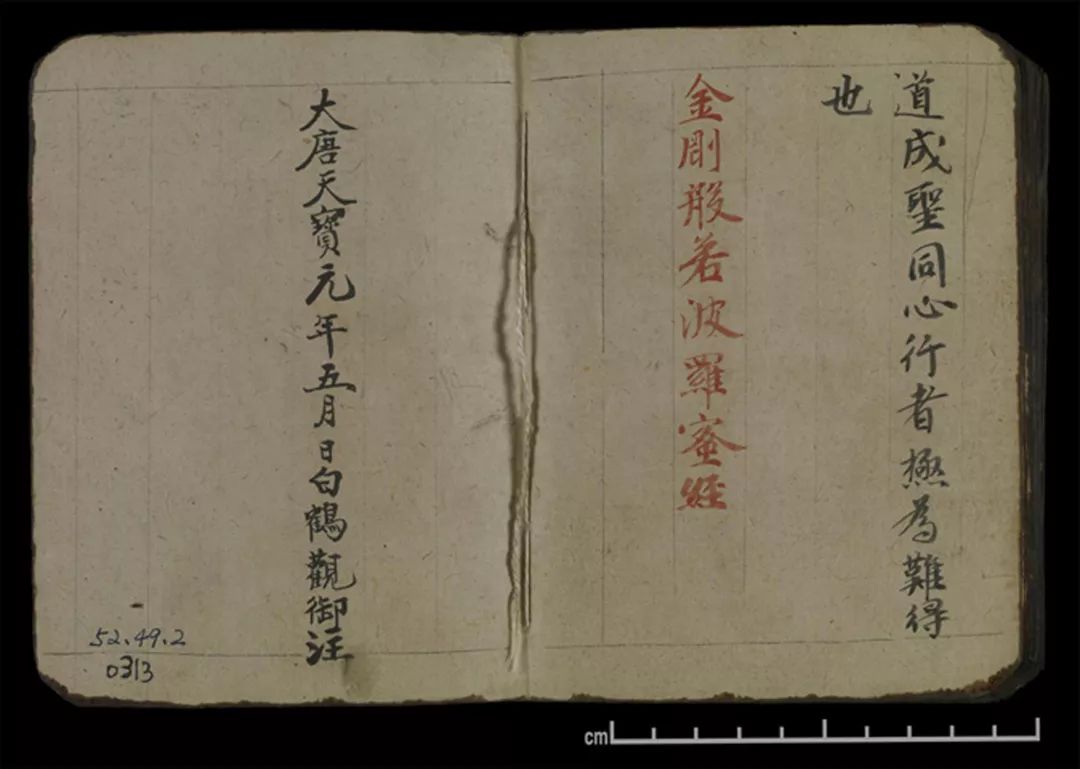 道成聖同心行者極為難得
也
金剛般若波羅蜜經
大唐天寶元年五月日白鶴觀御注
52.49.2
0313
cm